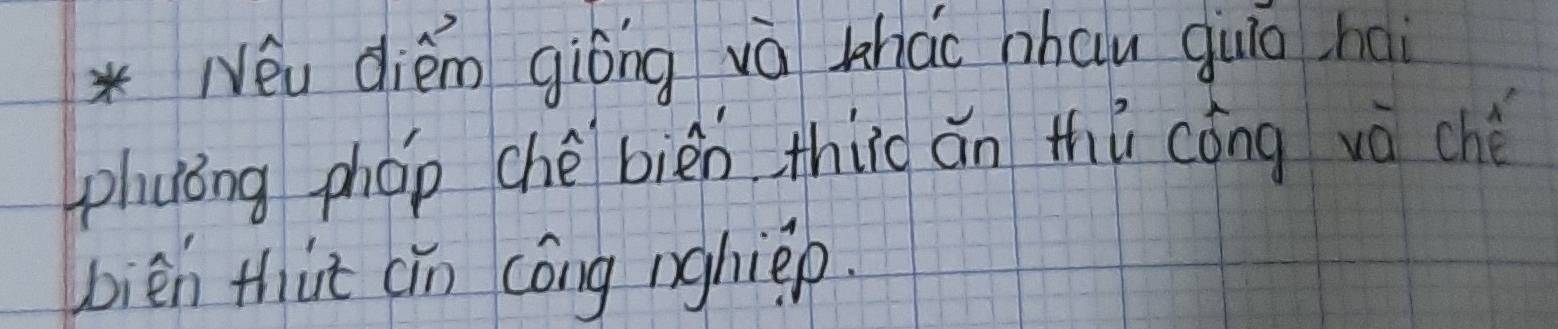 * Nêu điểm giống và khác nhau giữa hai
phương pháp chế biến thức ăn thủ công và chế
biến thức ăn công nghiệp.